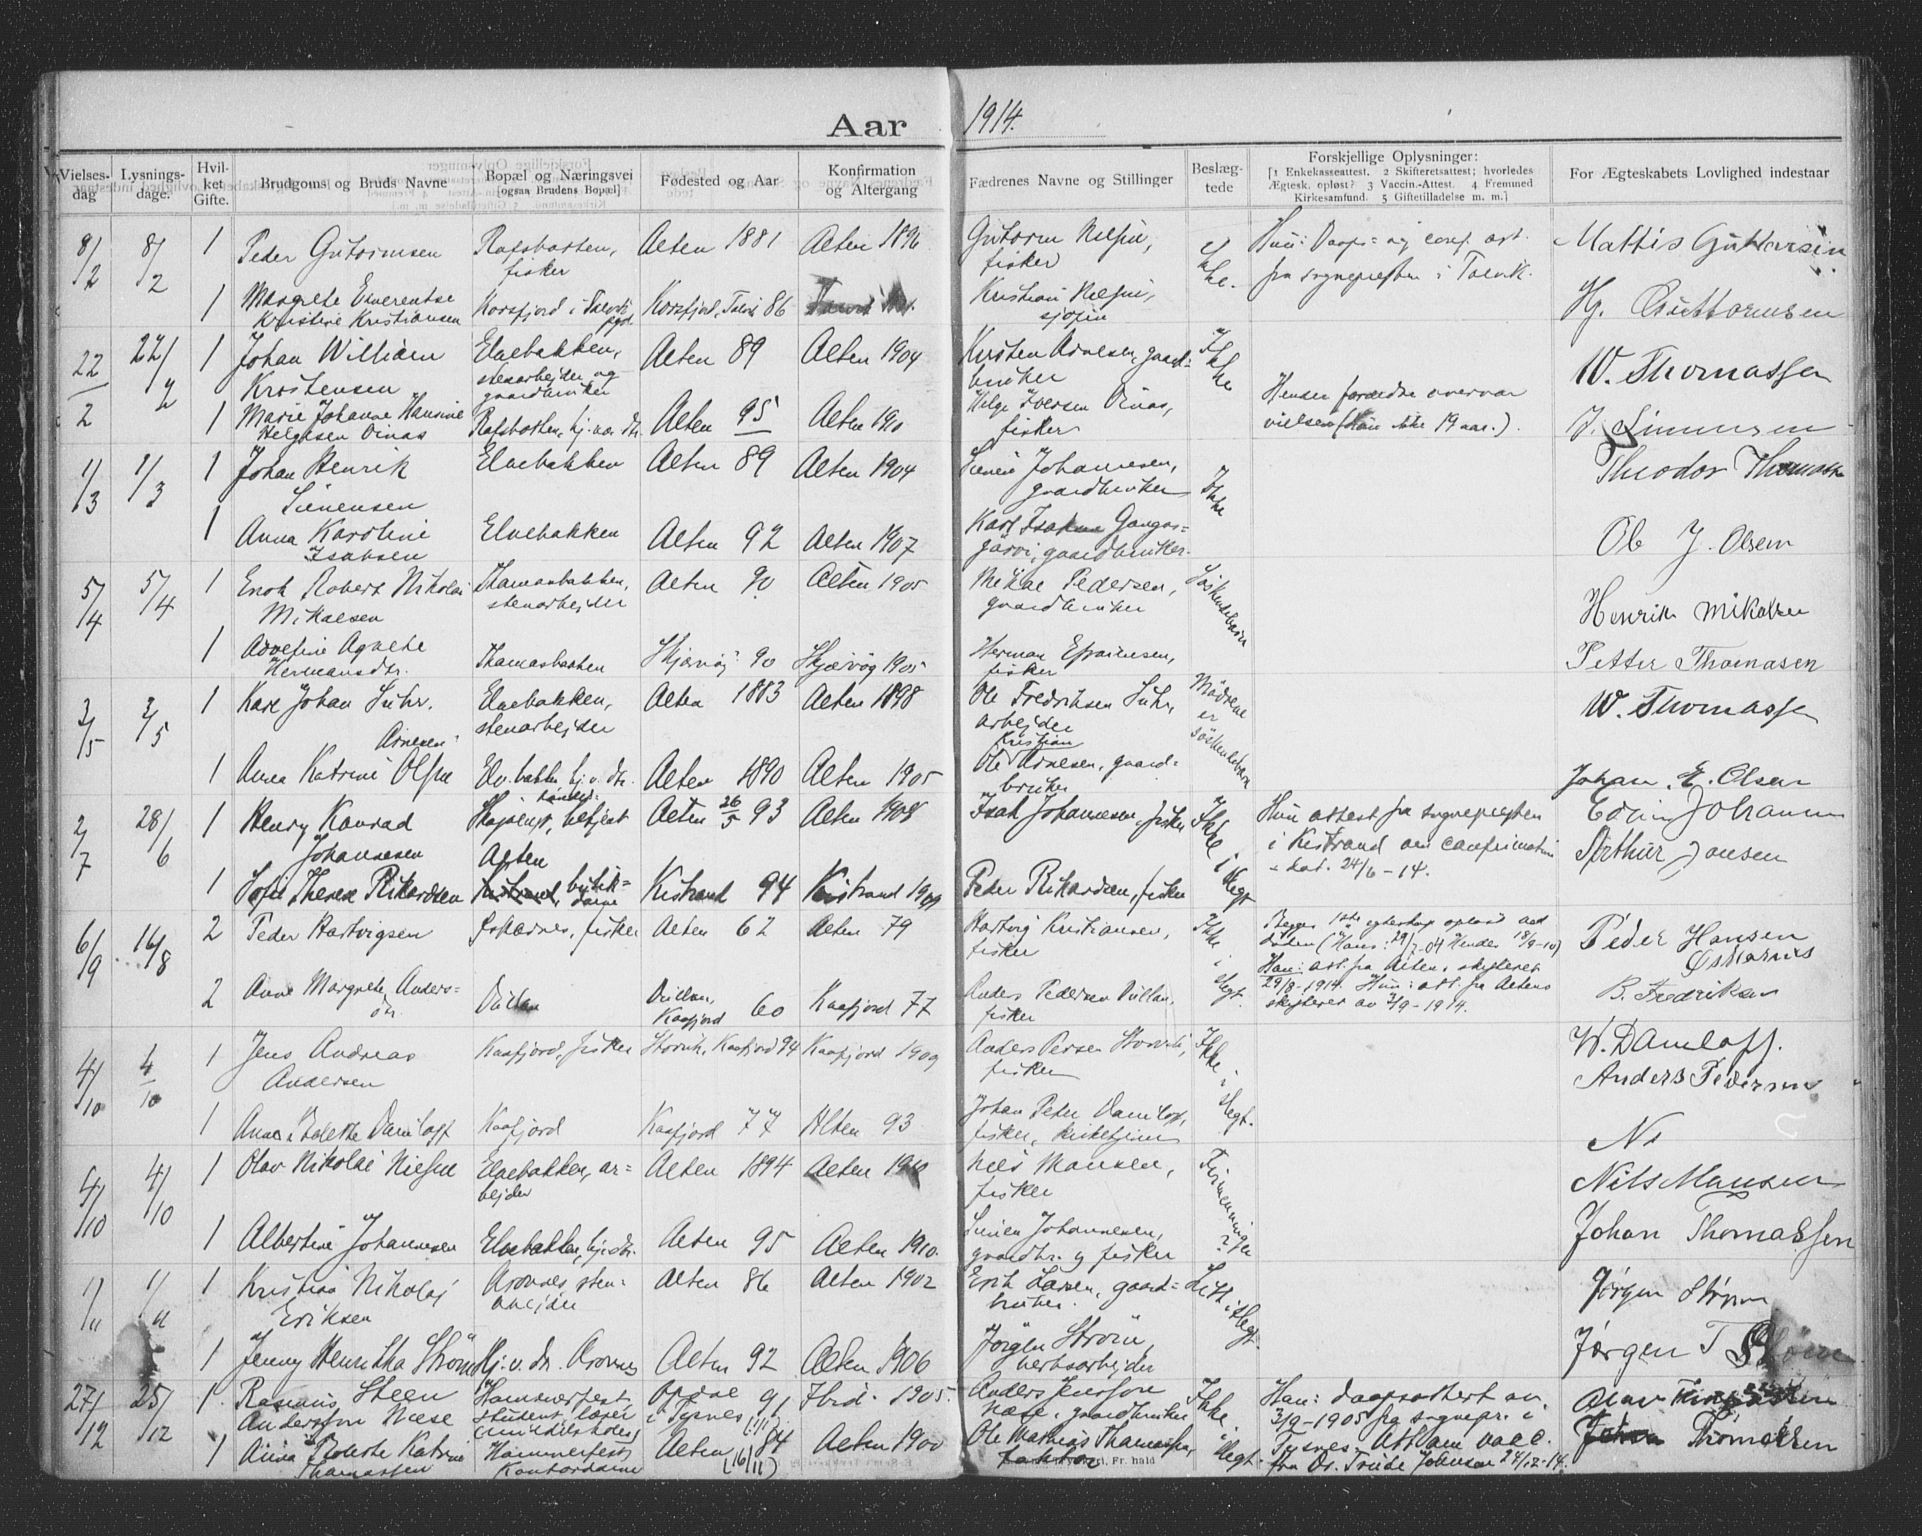 Aar 1914.
Vielses-dag Lysnings-dage. Hvilket Gifte. Brudgoms og Bruds Navne Bopæl og Næringsvei [ogsaa Brudens Bopæl] Fødested og Aar Konfirmation og Altergang Fædrenes Navne og Stillinger Beslægtede Forskjellige Oplysninger: [1 Enkekasseattest. 2 Skifteretsattest; hvorledes Ægtesk. opløst? 3 Vaccin.-Attest. 4 Fremmed Kirkesamfund. 5 Giftetilladelse m. m.] For Ægteskabets Lovlighed indestaar
8/2 8/2 1 Peder Gutormsen Rafsbotten, fisker Alten 1881 Alten 1896 Gutorm Nilsen, fisker Ikke. Hun: Daaps- og conf. att. fra sognepresten i Talvik. Mattis Guttorsen
1 Margrete Kristine Kristiansen Korsfjord i Talvik pgd. Korsfjord, Talvik 86 Kristian Nilsen, Hj. Guttormsen
22/2 22/2 1 Johan William Kristensen Elvebakken, stenarbejder og gaardbruker Alten 89 Alten 1904 Kristen Arnesen, gaardbruker Ikke W. Thomassen
1 Marie Johanne Hansine Helgesen Oinas Rafsbotten, hj. v. dtr. Alten 95 Alten 1910 Helge Iversen Oinas, fisker Hendes forældre overvar vielsen (hun ikke 19 aar.). J. Simensen
1/3 1/3 1 Johan Henrik Simensen Elvebakken Alten 89 Alten 1904 Simen Johannesen, gaardbruker Ikke Theodor Thomassen
1 Anna Karoline Isaksen Elvebakken Alten 92 Alten 1907 Karl Isaksen Gangasjärvi, gaardbruker. Ole J. Olsen
5/4 5/4 1 Enok Robert Nikolai Mikalsen Thomasbakken, stenarbejder Alten 90 Alten 1905 Mikal Pedersen, gaardbruker Söskendebarn Henrik Mikalsen
1 Agnete Hermansdtr. Thomasbakken Skjervøy 90 Skjervøg 1905 Herman Efraimsen, fisker Petter Thomasen
3/5 3/5 1 Karl Johan Suhr. Elvebakken, stenarbejder Alten 1883 Alten 1898 Ole Fredriksen Suhr, arbejder Mödrene er söskendebarn W. Thomassen
1 Anna Katrine Olsen Arnesen Elvebakken, hj. v. dtr. Alten 1890 Alten 1905 Ole Kristian Arnesen, gaardbruker Johan. E. Olsen
2/7 28/6 1 Henry Konrad Johannesen Alten Alten 26/5 93 Alten 1908 Isak Johannesen, fisker Ikke i slegt Hun attest fra sognepresten i Kistrand om confirmation dat. 24/6-14. Edin Johannesen Arthur Jansen
1 Sofie Therese Rikardsen Kistrand, Kistrand 94 Kistrand 1909 Peder Rikardsen, fisker
6/9 16/8 2 Peder Hartvigsen Oskarnes, fisker Alten 62 Alten 79 Hartvig Kristiansen, fisker Ikke i slegt. Begges 1ste egteskap opløst ved døden (Hans: 29/2 04 Hendes 18/9-10) Han: att. fra Alten. skifteret 29/8-1914. Hun: att. fra Altens skifteret av 3/9-1914. Peder Hansen
2 Anne Margrete Andersdtr. Dullan Dullan, Kaafjord 60 Kaafjord 77 Anders Pedersen Dullan, fisker B. Fredriksen
4/10 4/10 1 Jens Andreas Andersen Kaafjord, fisker Storvik, Kaafjord 94 Kaafjord 1909 Anders Persen Storvik, fisker Ikke i slegt. W. Daniloff. Anders Pedersen
1 Anna Bolette Daniloff Kaafjord Kaafjord 77 Alten 93 Johan Peter Daniloff, fisker, Ns
4/10 4/10 1 Olav Nikolai Nielsen Elvebakken, arbejder Alten 1894 Alten 1910 Niels Mansen, fisker Tremenninger? Nils Mansen
1 Albertine Johannesen Elvebakken, hj. v. dtr. Alten 95 Alten 1910. Simen Johannesen, gaardbr. og fisker Johan Thomassen
1/11 1/11 1 Kristian Nikolaj Eriksen Aronnes stenarbejder Alten 86 Alten 1902 Erik Larsen, gaardbruker. Litt i slegt. Jørgen Strøm
1 Jenny Henrikka Strøm Hj. v. dtr. Aronnes Alten 92 Alten 1906 Jørgen Strøm, verksarbejder Jørgen T Strøm
27/12 25/12 1. Rasmus Steen Andersson Næse Hammerfest, student, lærer i Tysnes 91 Ibid. 1905. Anders Iversson Næse, gaardbruker Ikke i slegt. Han: daapsattest av 3/9-1905 fra sognepr. i Tysnes. Att. om vacc. fra Dr. Trude Johnsen 24/12-14. Olav Thomassen
1 Anna Bolette Katrine Thomassen Hammerfest Kontordame Alten 84 (16/11) Alten 1900 Ole Mathias Thomassen, faktor Johan Thomassen